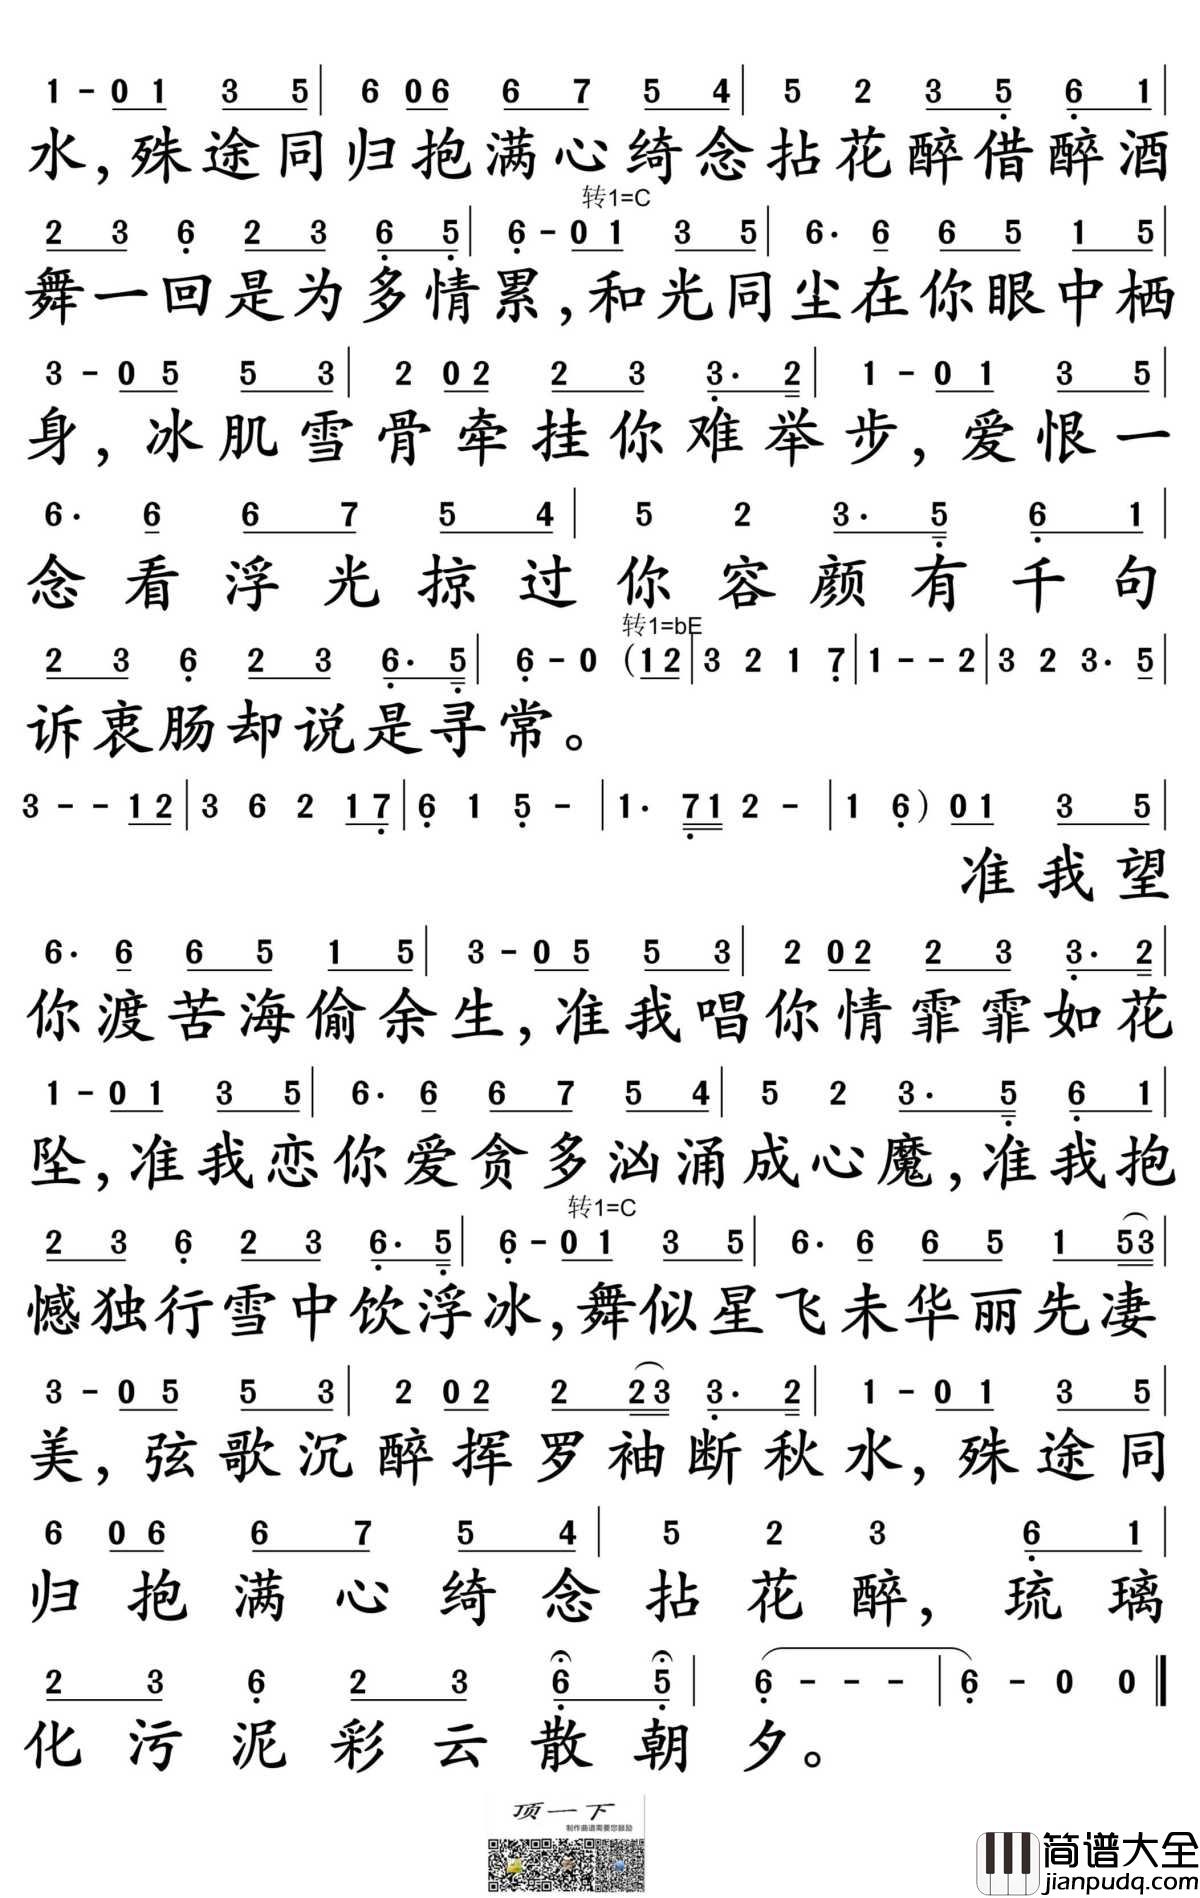 1 - 0 1 3 5 | 6 0 6 6 7 5 4 | 5 2 3 5 6 1 |
水,殊途同归抱满心绮念拈花醉借醉酒
转1=C
2 3 6 2 3 6 5 | 6 - 0 1 3 5 | 6· 6 6 5 1 5 |
舞一回是为多情累,和光同尘在你眼中栖
3 - 0 5 5 3 | 2 0 2 2 3 3· 2 | 1 - 0 1 3 5 |
身,冰肌雪骨牵挂你难举步,爱恨一
6· 6 6 7 5 4 | 5 2 3· 5 6 1 |
念看浮光掠过你容颜有千句
转1=bE
2 3 6 2 3 6· 5 | 6 - 0 (1 2 | 3 2 1 7 | 1 - - 2 | 3 2 3· 5 |
诉衷肠却说是寻常。
3 - - 1 2 | 3 6 2 1 7 | 6 1 5 - | 1· 7 1 2 - | 1 6) 0 1 3 5 |
准我望
6· 6 6 5 1 5 | 3 - 0 5 5 3 | 2 0 2 2 3 3· 2 |
你渡苦海偷余生,准我唱你情霏霏如花
1 - 0 1 3 5 | 6· 6 6 7 5 4 | 5 2 3· 5 6 1 |
坠,准我恋你爱贪多汹涌成心魔,准我抱
转1=C
2 3 6 2 3 6· 5 | 6 - 0 1 3 5 | 6· 6 6 5 1 5 3 |
憾独行雪中饮浮冰,舞似星飞未华丽先凄
3 - 0 5 5 3 | 2 0 2 2 2 3 3· 2 | 1 - 0 1 3 5 |
美,弦歌沉醉挥罗袖断秋水,殊途同
6 0 6 6 7 5 4 | 5 2 3 6 1 |
归抱满心绮念拈花醉,琉璃
2 3 6 2 3 6 5 | 6 - - - | 6 - 0 0 ‖
化污泥彩云散朝夕。
顶一下
制作曲谱需要您鼓励
简谱大全
jianpudq.com